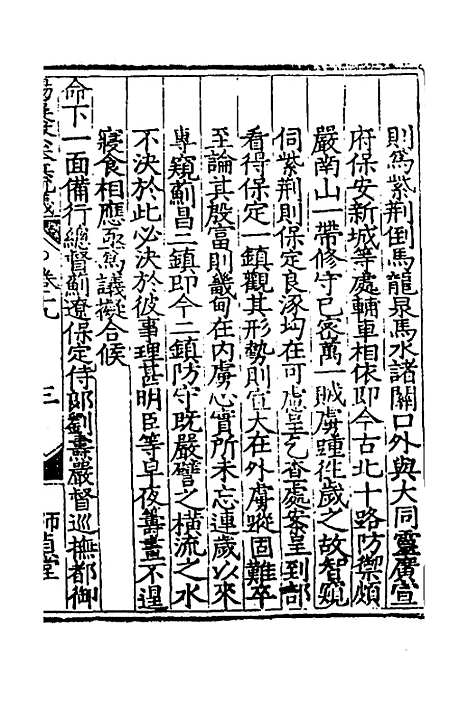 則為紫荆倒馬龍泉馬水諸關口外與大同靈廣宣
府保安新城等處輔車相依即今古北十路防禦頗
嚴南山一帶修守已密萬一賊虜踵往歲之故智窺
伺紫荆則保定良涿均在可慮呈乞查處案呈到部
看得保定一鎮觀其形勢則宣大在外虜蹤固難卒
至論其殷富則畿甸在內虜心實所未忘連歲以來
專窺薊昌二鎮即今二鎮防守既嚴譬之横流之水
不決於此必決於彼事理甚明臣等早夜籌畫不遑
寢食相應亟為議擬合候
命下一面備行總督薊遼保定侍郎劉燾嚴督巡撫都御
卷十九
三
師貞堂